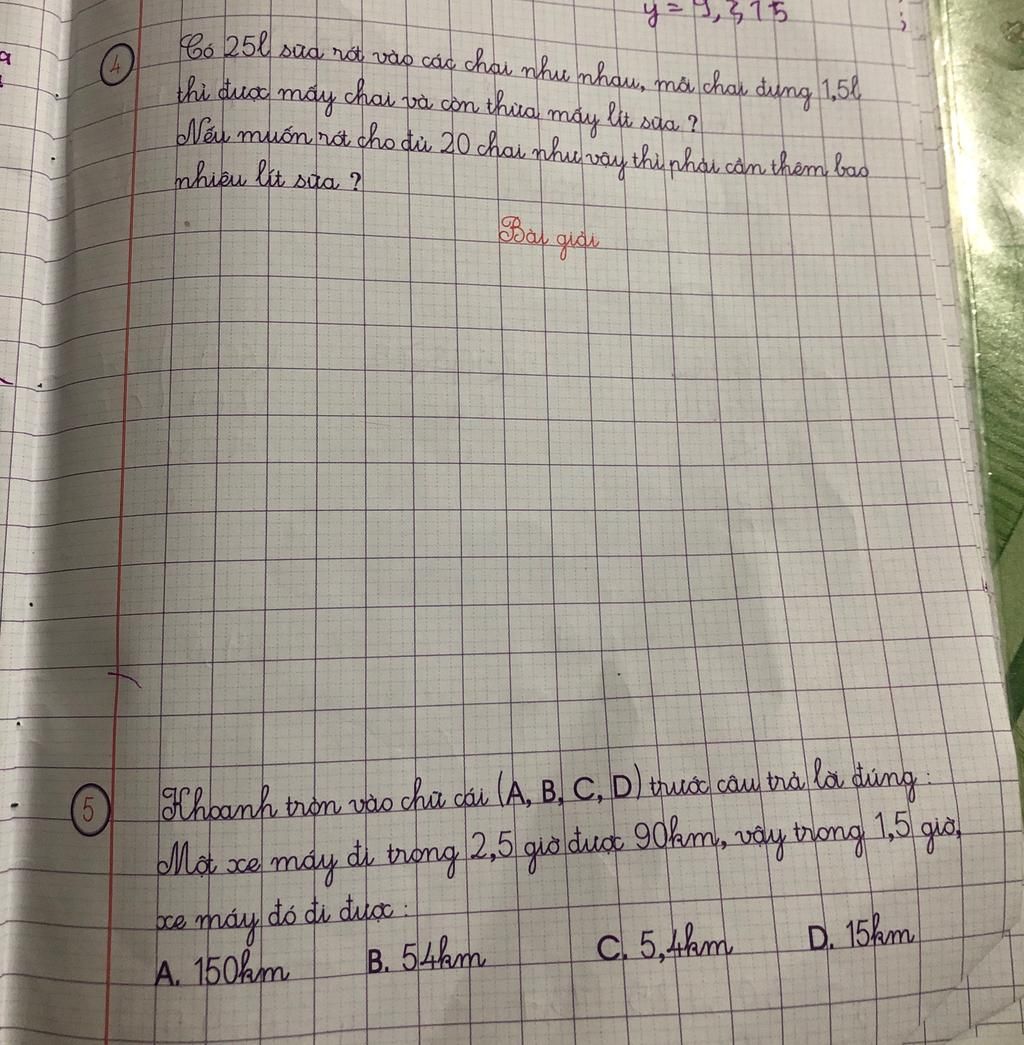 y = 9,375
;
4 Có 25l sữa rót vào các chai như nhau, mỗi chai đựng 1,5l
thì được mấy chai và còn thừa mấy lít sữa ?
Nếu muốn rót cho đủ 20 chai như vậy thì phải cần thêm bao
nhiêu lít sữa ?
Bài giải
5 Khoanh tròn vào chữ cái (A, B, C, D) trước câu trả lời đúng :
Một xe máy đi trong 2,5 giờ được 90km, vậy trong 1,5 giờ,
xe máy đó đi được :
A. 150km B. 54km C. 5,4km D. 15km